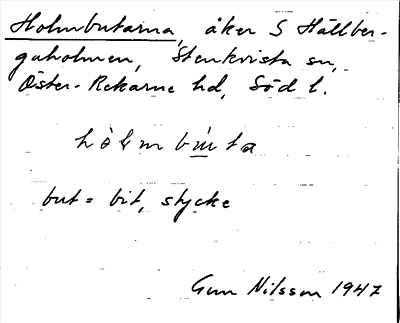 Holmbutarna, åker S Hällber-
gaholmen, Stenkvista sn,
Öster-Rekarne hd, Söd l.
hòlmbu̇ta
but = bit, stycke
Gun Nilsson 1947